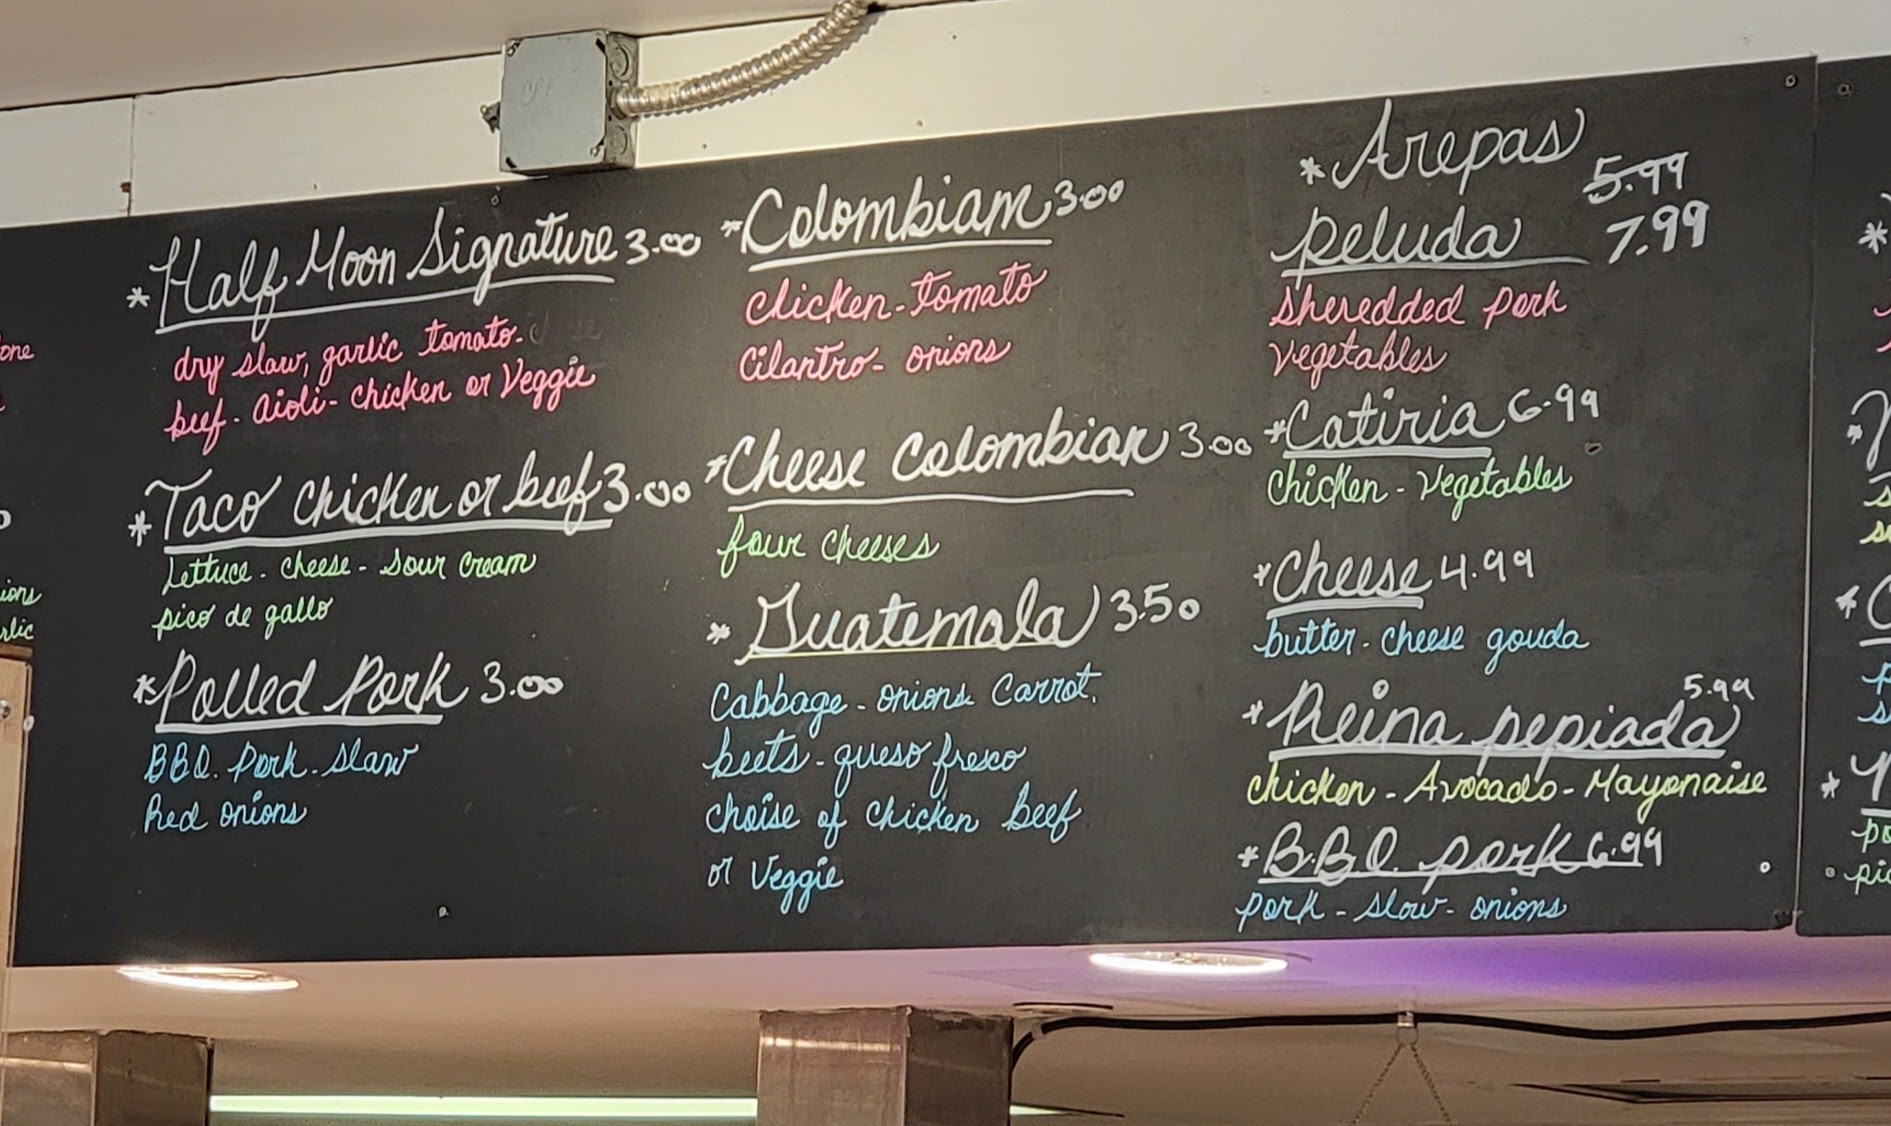 * Half Moon Signature 3.00
dry slaw, garlic tomato-
beef - aioli - chicken or Veggie
* Taco chicken or beef 3.00
Lettuce - cheese - sour cream
pico de gallo
* Polled Pork 3.00
BBQ. Pork - slaw
Red onions
* Colombiam 3.00
chicken - tomato
Cilantro - onions
* Cheese Colombian 3.00
four cheeses
* Guatemala 3.50
Cabbage - onions Carrot,
beets - queso fresco
choise of chicken beef
or Veggie
* Arepas
5.99
peluda 7.99
Sheredded pork
Vegetables
* Catiria 6.99
Chicken - Vegetables
* Cheese 4.99
butter - cheese gouda
5.99
* Reina pepiada
chicken - Avocado - Mayonaise
* B.B.Q. pork 6.99
pork - slow - onions
one
ions
rlic